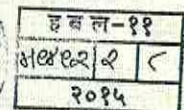 हवल-११
७१४९२ २ ८
२०१५